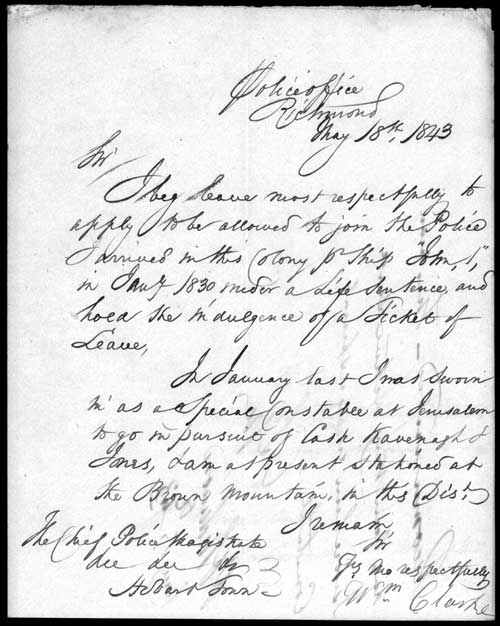 Police office
Richmond
May 18th 1843
Sir
I beg leave most respectfully to
apply to be allowed to join the Police
I arrived in this Colony pr Ship "John, 1,"
in Jany 1830 under a Life Sentence, and
hold the indulgence of a Ticket of
Leave,
In January last I was sworn
in as a Special Constable at Jerusalem
to go in pursuit of Cash Kavenagh &
Jones, I am at present stationed at
the Brown Mountain, in this Dist.
I remain
Sir
The Chief Police Magistrate
&c &c &c
Hobart Town
Yrs mo respectfully
Wm Clarke